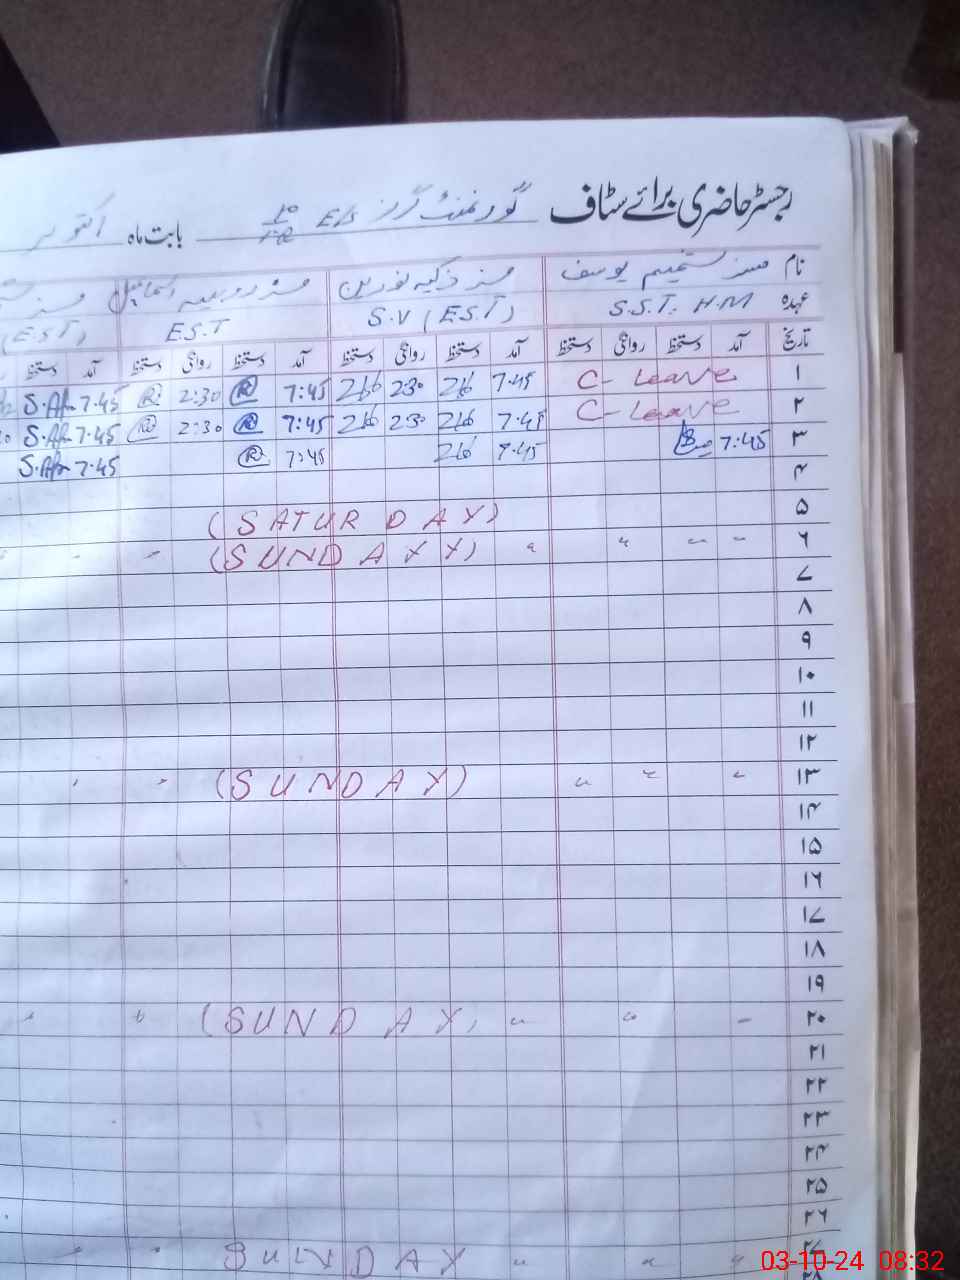 رجسٹر حاضری برائے سٹاف گورنمنٹ گرلز بابت ماہ اکتوبر
نام مسز شمیم یوسف مسز ذکیہ نورین مسز
عہدہ S.S.T. H.M S.V (E.S.T) E.S.T (E.S.T)
تاریخ آمد دستخط روانگی دستخط آمد دستخط روانگی دستخط آمد دستخط روانگی دستخط آمد دستخط
۱ C- Leave 7.45 216 2:30 216 7:45 R 2:30 R 7.45 S.Af
۲ C- Leave 7.45 216 2:30 216 7:45 R 2:30 R 7.45 S.Af
۳ 7:45 7.45 216 7:45 R 7.45 S.Af
۴
۵ (SATURDAY)
۶ " " " " (SUNDAYY) " "
۷
۸
۹
۱۰
۱۱
۱۲
۱۳ " " " (SUNDAY) " "
۱۴
۱۵
۱۶
۱۷
۱۸
۱۹
۲۰ " " " (SUNDAY) " "
۲۱
۲۲
۲۳
۲۴
۲۵
۲۶
۲۷ " " " SUNDAY " "
۲۸
03-10-24 08:32